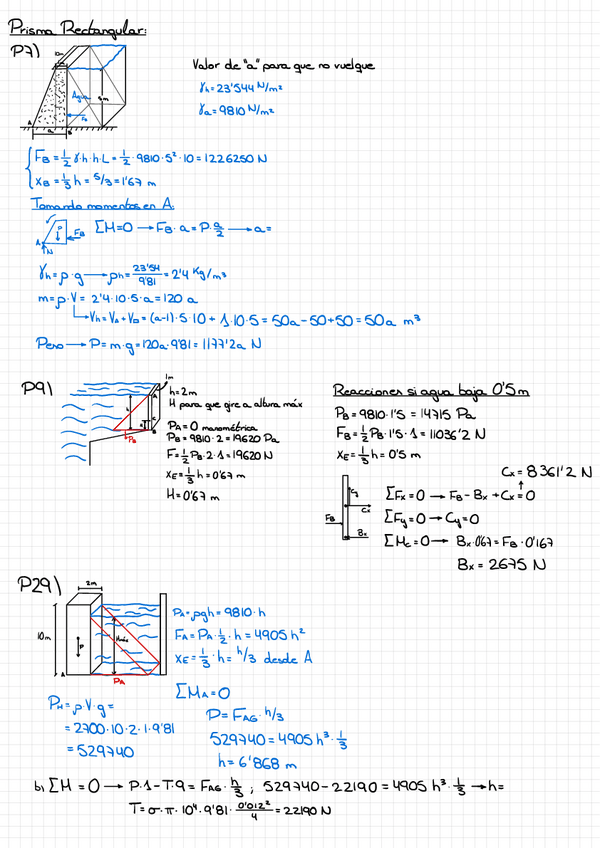 Prisma Rectangular:
P7)
Valor de "a" para que no vuelque
γh = 23'544 N/m²
γa = 9810 N/m²
10m
Agua
5m
A
a
B
FB = 1/2 γ·h·h·L = 1/2 · 9810·5²·10 = 1226250 N
XB = 1/3 h = 5/3 = 1'67 m
Tomando momentos en A:
P
FB
A
N
ΣM=0 → FB · a = P · a/2 → a=
γh = ρ·g → ρh = 23'54/9'81 = 2'4 Kg/m³
m = ρ·V = 2'4·10·5·a = 120 a
Vh = V△ + V□ = (a-1)·5·10 + 1·10·5 = 50a - 50 + 50 = 50a m³
Peso → P = m·g = 120a·9'81 = 1177'2a N
P9)
1m
A
h
C
B
PB
h=2m
H para que gire a altura máx
PA = 0 manométrica
PB = 9810·2 = 19620 Pa
F = 1/2 PB·2·1 = 19620 N
XE = 1/3 h = 0'67 m
H = 0'67 m
Reacciones si agua baja 0'5m
PB = 9810·1'5 = 14715 Pa
FB = 1/2 PB·1'5·1 = 11036'2 N
XE = 1/3 h = 0'5 m
Cx = 8361'2 N
Cy
Cx
FB
Bx
ΣFx = 0 → FB - Bx + Cx = 0
ΣFy = 0 → Cy = 0
ΣMc = 0 → Bx·0'67 = FB·0'167
Bx = 2675 N
P29)
2m
10m
P
hmáx
A
PA
PA = ρgh = 9810·h
FA = PA·1/2·h = 4905 h²
XE = 1/3·h = h/3 desde A
ΣMA = 0
PH = ρ·V·g =
= 2700·10·2·1·9'81
= 529740
P = FAG · h/3
529740 = 4905 h³ · 1/3
h = 6'868 m
b) ΣM = 0 → P·1 - T·9 = FAG · h/3 ; 529740 - 22190 = 4905 h³ · 1/3 → h=
T = σ·π·10⁴·9'81 · 0'012²/4 = 22190 N